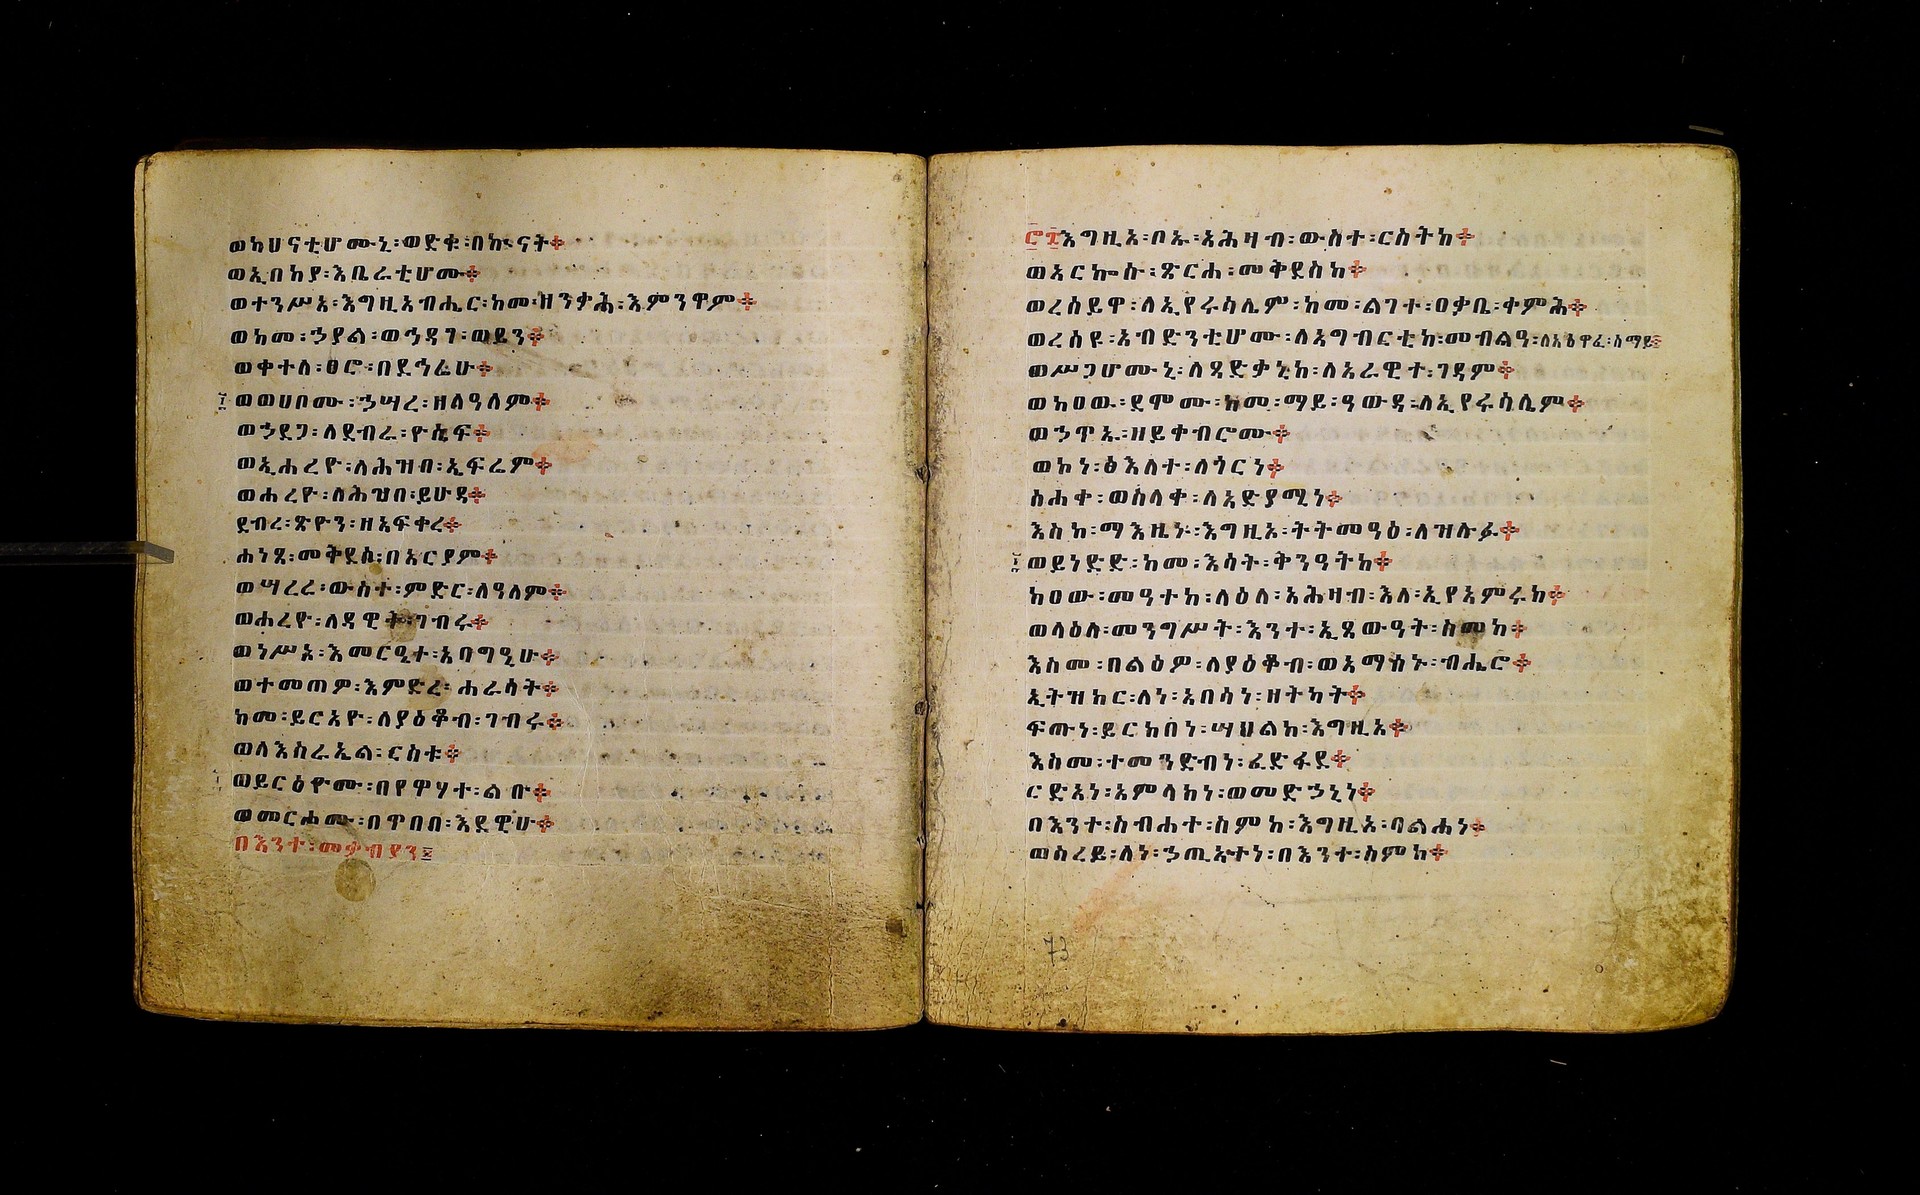 ወካህናቲሆሙኒ፡ወድቁ፡በኲናት።
ወኢበከያ፡እቤራቲሆሙ።
ወተንሥአ፡እግዚአብሔር፡ከመ፡ዘንቃሕ፡እምንዋም።
ወከመ፡ኃያል፡ወኅዳገ፡ወይን።
ወቀተለ፡ፀሮ፡በደኅሬሁ።
ወወሀቦሙ፡ኃሣረ፡ዘለዓለም።
ወኃደጋ፡ለደብራ፡ዮሴፍ።
ወኢሐረዮ፡ለሕዝበ፡ኤፍሬም።
ወሐረዮ፡ለሕዝበ፡ይሁዳ።
ደብረ፡ጽዮን፡ዘአፍቀረ።
ሐነጸ፡መቅደሰ፡በአርያም።
ወሣረረ፡ውስተ፡ምድር፡ለዓለም።
ወሐረዮ፡ለዳዊት፡ገብሩ።
ወነሥአ፡እመርዒተ፡አባግዒሁ።
ወተመጠዎ፡እምድኅረ፡ሐራሳት።
ከመ፡ይርአዮ፡ለያዕቆብ፡ገብሩ።
ወለእስራኤል፡ርስቱ።
ወይርዕዮሙ፡በየዋሃተ፡ልቡ።
ወመርሖሙ፡በጥበበ፡እደዊሁ።
በእንተ፡መቃብያን፤
፸፰እግዚአ፡ቦኡ፡አሕዛብ፡ውስተ፡ርስትከ።
ወአርኰሱ፡ጽርሐ፡መቅደስከ።
ወረሰይዋ፡ለኢየሩሳሌም፡ከመ፡ልገተ፡ዐቃቤ፡ቀምሕ።
ወረሰዩ፡አብድንቲሆሙ፡ለአግብርቲከ፡መብልዓ፡ለአዕዋፈ፡ሰማይ።
ወሥጋሆሙኒ፡ለጻድቃኒከ፡ለአራዊተ፡ገዳም።
ወከዐዉ፡ደሞሙ፡ከመ፡ማይ፡ዓውዳ፡ለኢየሩሳሌም።
ወኃጥኡ፡ዘይቀብሮሙ።
ወኮነ፡ፅእለተ፡ለጎርነ።
ስሐቀ፡ወስላቀ፡ለአድያሚነ።
እስከ፡ማእዜኑ፡እግዚአ፡ትትመዓዕ፡ለዝሉፉ።
ወይነድድ፡ከመ፡እሳት፡ቅንዓትከ።
ከዐው፡መዓተከ፡ላዕለ፡አሕዛብ፡እለ፡ኢየአምሩከ።
ወላዕለ፡መንግሥት፡እንተ፡ኢጸውዓት፡ስመከ።
እስመ፡በልዕዎ፡ለያዕቆብ፡ወአማሰኑ፡ብሔሮ።
ኢትዝክር፡ለነ፡አበሳነ፡ዘትካት።
ፍጡነ፡ይርከበነ፡ሣህልከ፡እግዚአ።
እስመ፡ተመንደብነ፡ፈድፋደ።
ርድአነ፡አምላክነ፡ወመድኃኒነ።
በእንተ፡ስብሐተ፡ስምከ፡እግዚአ፡ባልሐነ።
ወስረይ፡ለነ፡ኃጢአተነ፡በእንተ፡ስምከ።
73